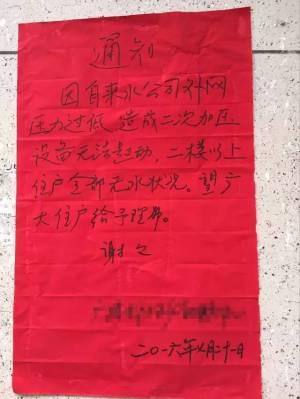 通知
因自来水公司外网
压力过低，造成二次加压
设备无法起动，二楼以上
住户全部无水状况。望广
大住户给予理解。
谢谢
二〇一六年七月二十一日